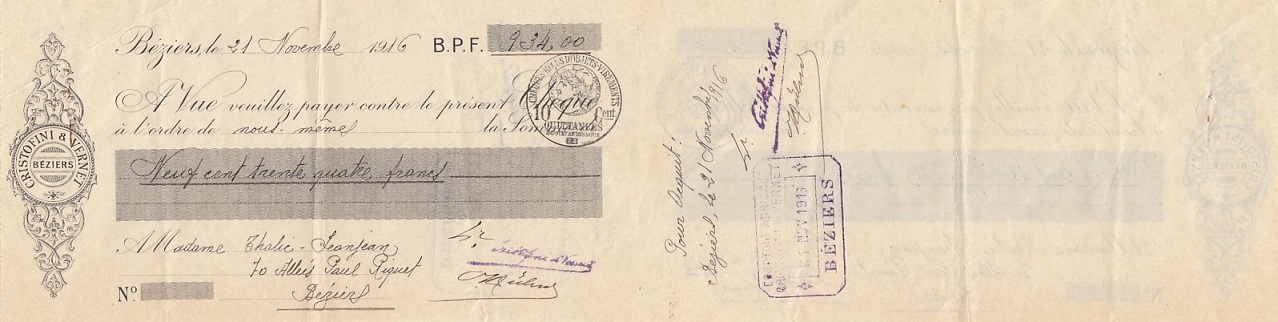 Béziers, le 21 Novembre 1916 B.P.F. 934,00
A Vue veuillez payer contre le présent Chèque
à l'ordre de nous-même la Somme
Neuf cent trente quatre francs
A Madame Thalie Jeanjean
70 Allées Paul Riquet
Béziers
Nº
CRISTOFINI & VERNET
BÉZIERS
10 Cent
QUITTANCES
Pr Cristofini & Vernet
Pour acquit:
Béziers, le 21 Novembre 1916
Pr Cristofini & Vernet
21 NOV 1916
BÉZIERS